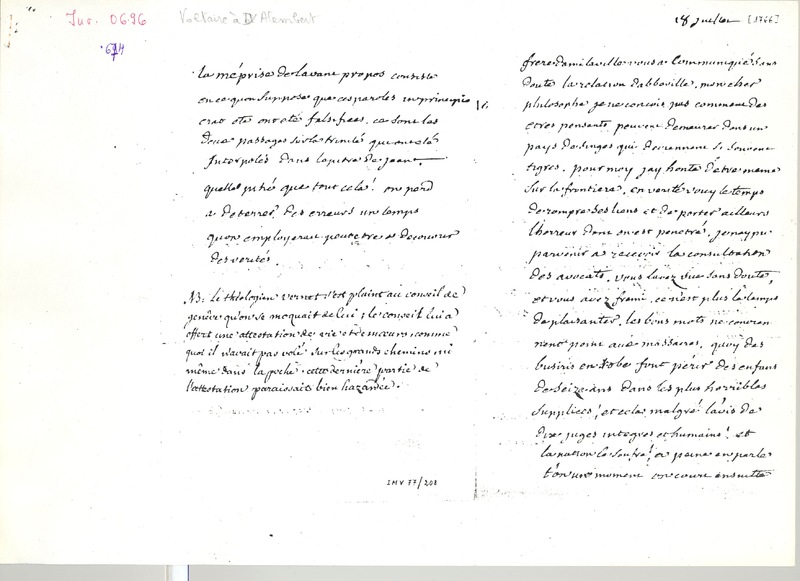 Inv. 0696
Voltaire à D'Alembert
18 juillet [1766]
la méprise de lavant propos consiste
en ce quon suppose que ces paroles in principio
erat etc ont été falsifiées. ce sont les
deux passages sur la trinité qui ont été
Interpolés dans lepitre de jean.
quelle pitié que tout cela! on perd
a deterrer des erreurs un temps
quon employerait peutetre a decouvrir
des verités.
NB: Le théologien vernet s'est plaint au conseil de
genêve qu'on se moquait de lui; le conseil lui a
offert une attestation de vie et de moeurs, comme
quoi il n'avait pas volé sur les grands chemins ni
même dans la poche. cette dernière partie de
l'attestation paraissait bien hazardée.
IMV 77/208
frere damilaville vous a Communiqué sans
doute la relation dabbeville, mon cher
philosophe je ne concois pas comment des
etres pensants peuvent demeurer dans un
pays de singes qui deviennent si souvent
tigres. pour moy jay honte d'être meme
sur la frontiere. en verité voicy le temps
de rompre ses liens et de porter ailleurs
lhorreur dont on est penetré. je nay pu
parvenir a recevoir la consultation
des avocats. vous lavez vue sans doute,
et vous avez fremi. ce n'est plus le temps
de plaisanter. les bons mots ne convien
nent point aux massacres. quoy des
busiris en robe font périr des enfans
de seize ans dans les plus horribles
supplices! et cela malgré lavis de
dix juges integres et humains! et
la nation le soufre! a peine en parle
t'on un moment, on court ensuitte